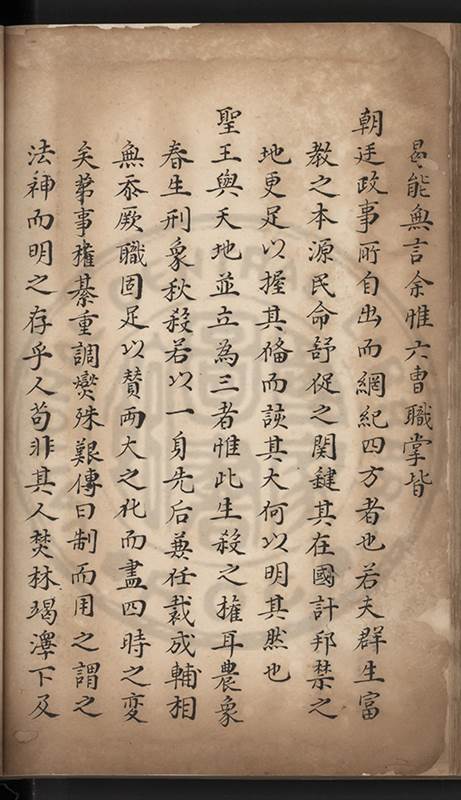 曷能無言余惟六曹職掌皆
朝廷政事所自出而網紀四方者也若夫群生富
教之本源民命舒促之関鍵其在國計邦禁之
地更足以握其偹而該其大何以明其然也
聖王與天地並立為三者惟此生殺之權耳農象
春生刑象秋殺若以一身先后兼任裁成輔相
無忝厥職固足以賛兩大之化而盡四時之変
矣苐事権綦重調爕殊艱傳曰制而用之謂之
法神而明之存乎人苟非其人焚林竭澤下及